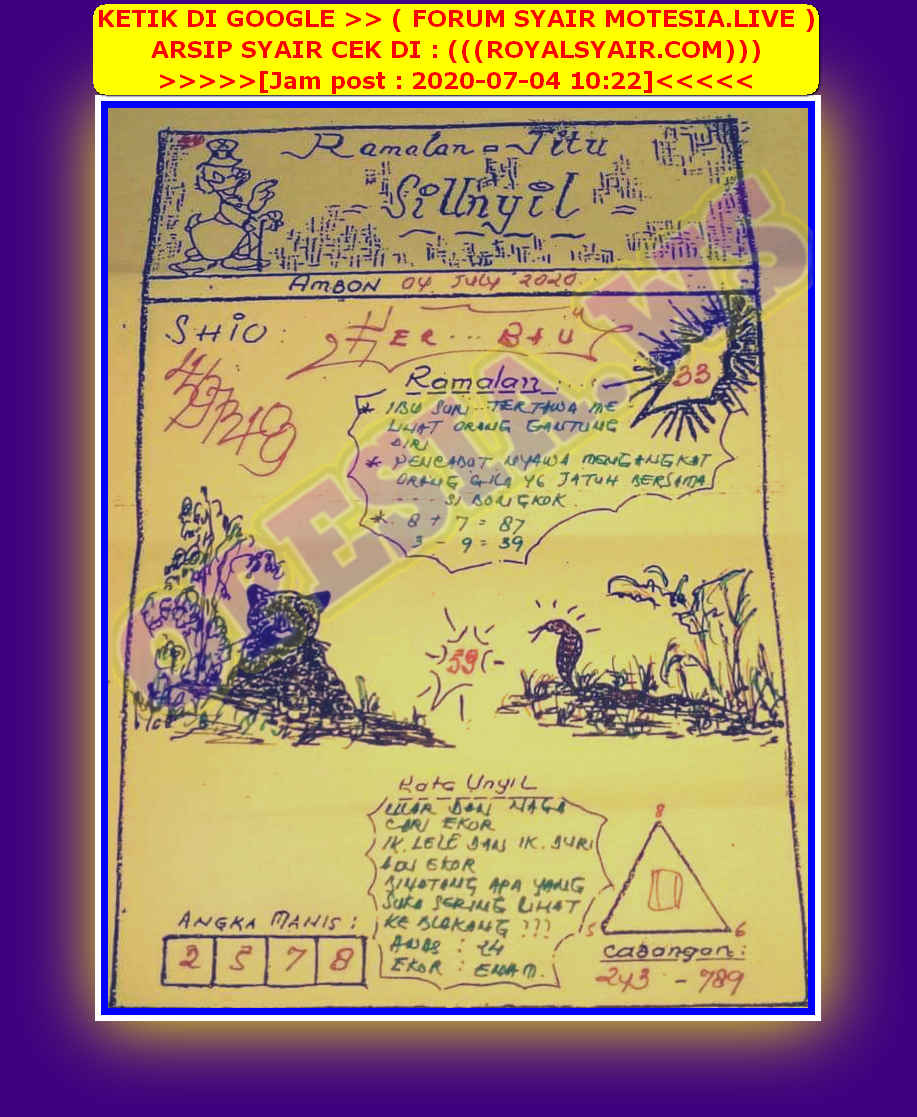 KETIK DI GOOGLE >> ( FORUM SYAIR MOTESIA.LIVE )
ARSIP SYAIR CEK DI : (((ROYALSYAIR.COM)))
>>>>>[Jam post : 2020-07-04 10:22]<<<<<
Ramalan = Jitu
Si Unyil
AMBON 04 July 2020.
SHIO :
33
Ramalan :
* IBU SURI TERTAWA ME
LIHAT ORANG GANTUNG
DIRI
* PENCABUT NYAWA MENGANGKAT
ORANG GILA YG JATUH BERSAMA
SI BONGKOK.
* 8 + 7 = 87
3 - 9 = 39
59
Kata Unyil
ULAR DAN NAGA
CARI EKOR
IK. LELE DAN IK. DURI
ADU EKOR
BINATANG APA YANG
SUKA SERING LIHAT
KE BLAKANG ???
EKOR : ENAM.
ANGKA MANIS :
2 5 7 8
8
5 6
CABANGAN :
243 - 789